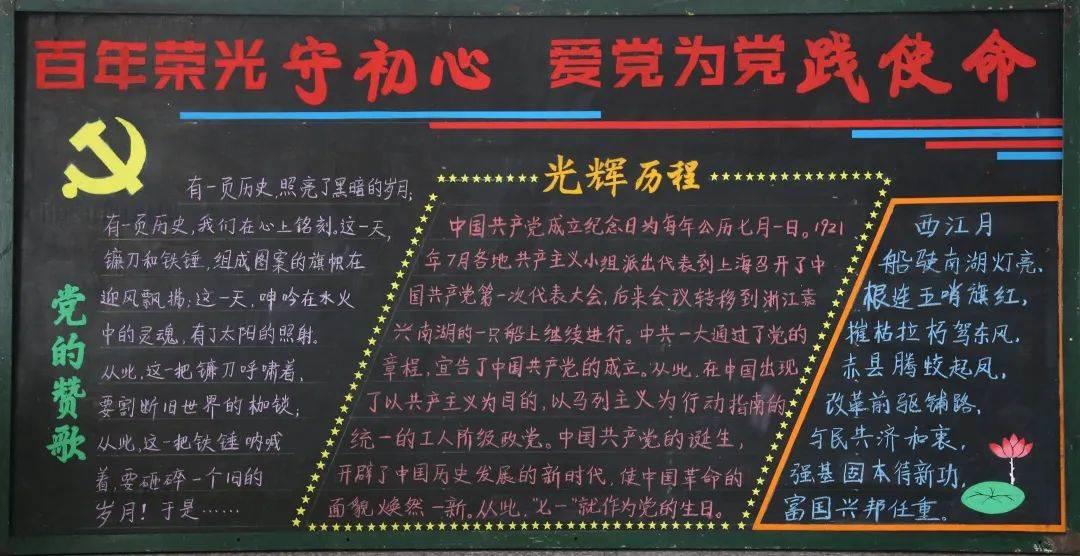 百年荣光守初心 爱党为党践使命
党的赞歌
有一页历史,照亮了黑暗的岁月;
有一页历史,我们在心上铭刻。这一天,
镰刀和铁锤,组成图案的旗帜在
迎风飘扬;这一天,呻吟在水火
中的灵魂,有了太阳的照射。
从此,这一把镰刀呼啸着,
要割断旧世界的枷锁;
从此,这一把铁锤呐喊
着,要砸碎一个旧的
岁月!于是……
光辉历程
中国共产党成立纪念日为每年公历七月一日。1921
年7月各地共产主义小组派出代表到上海召开了中
国共产党第一次代表大会,后来会议转移到浙江嘉
兴南湖的一只船上继续进行。中共一大通过了党的
章程,宣告了中国共产党的成立。从此,在中国出现
了以共产主义为目的,以马列主义为行动指南的
统一的工人阶级政党。中国共产党的诞生,
开辟了中国历史发展的新时代,使中国革命的
面貌焕然一新。从此,"七一"就作为党的生日。
西江月
船驶南湖灯亮,
根连五哨旗红,
摧枯拉朽驾东风,
赤县腾蛟起凤,
改革前驱铺路,
与民共济和衷,
强基固本待新功,
富国兴邦任重。